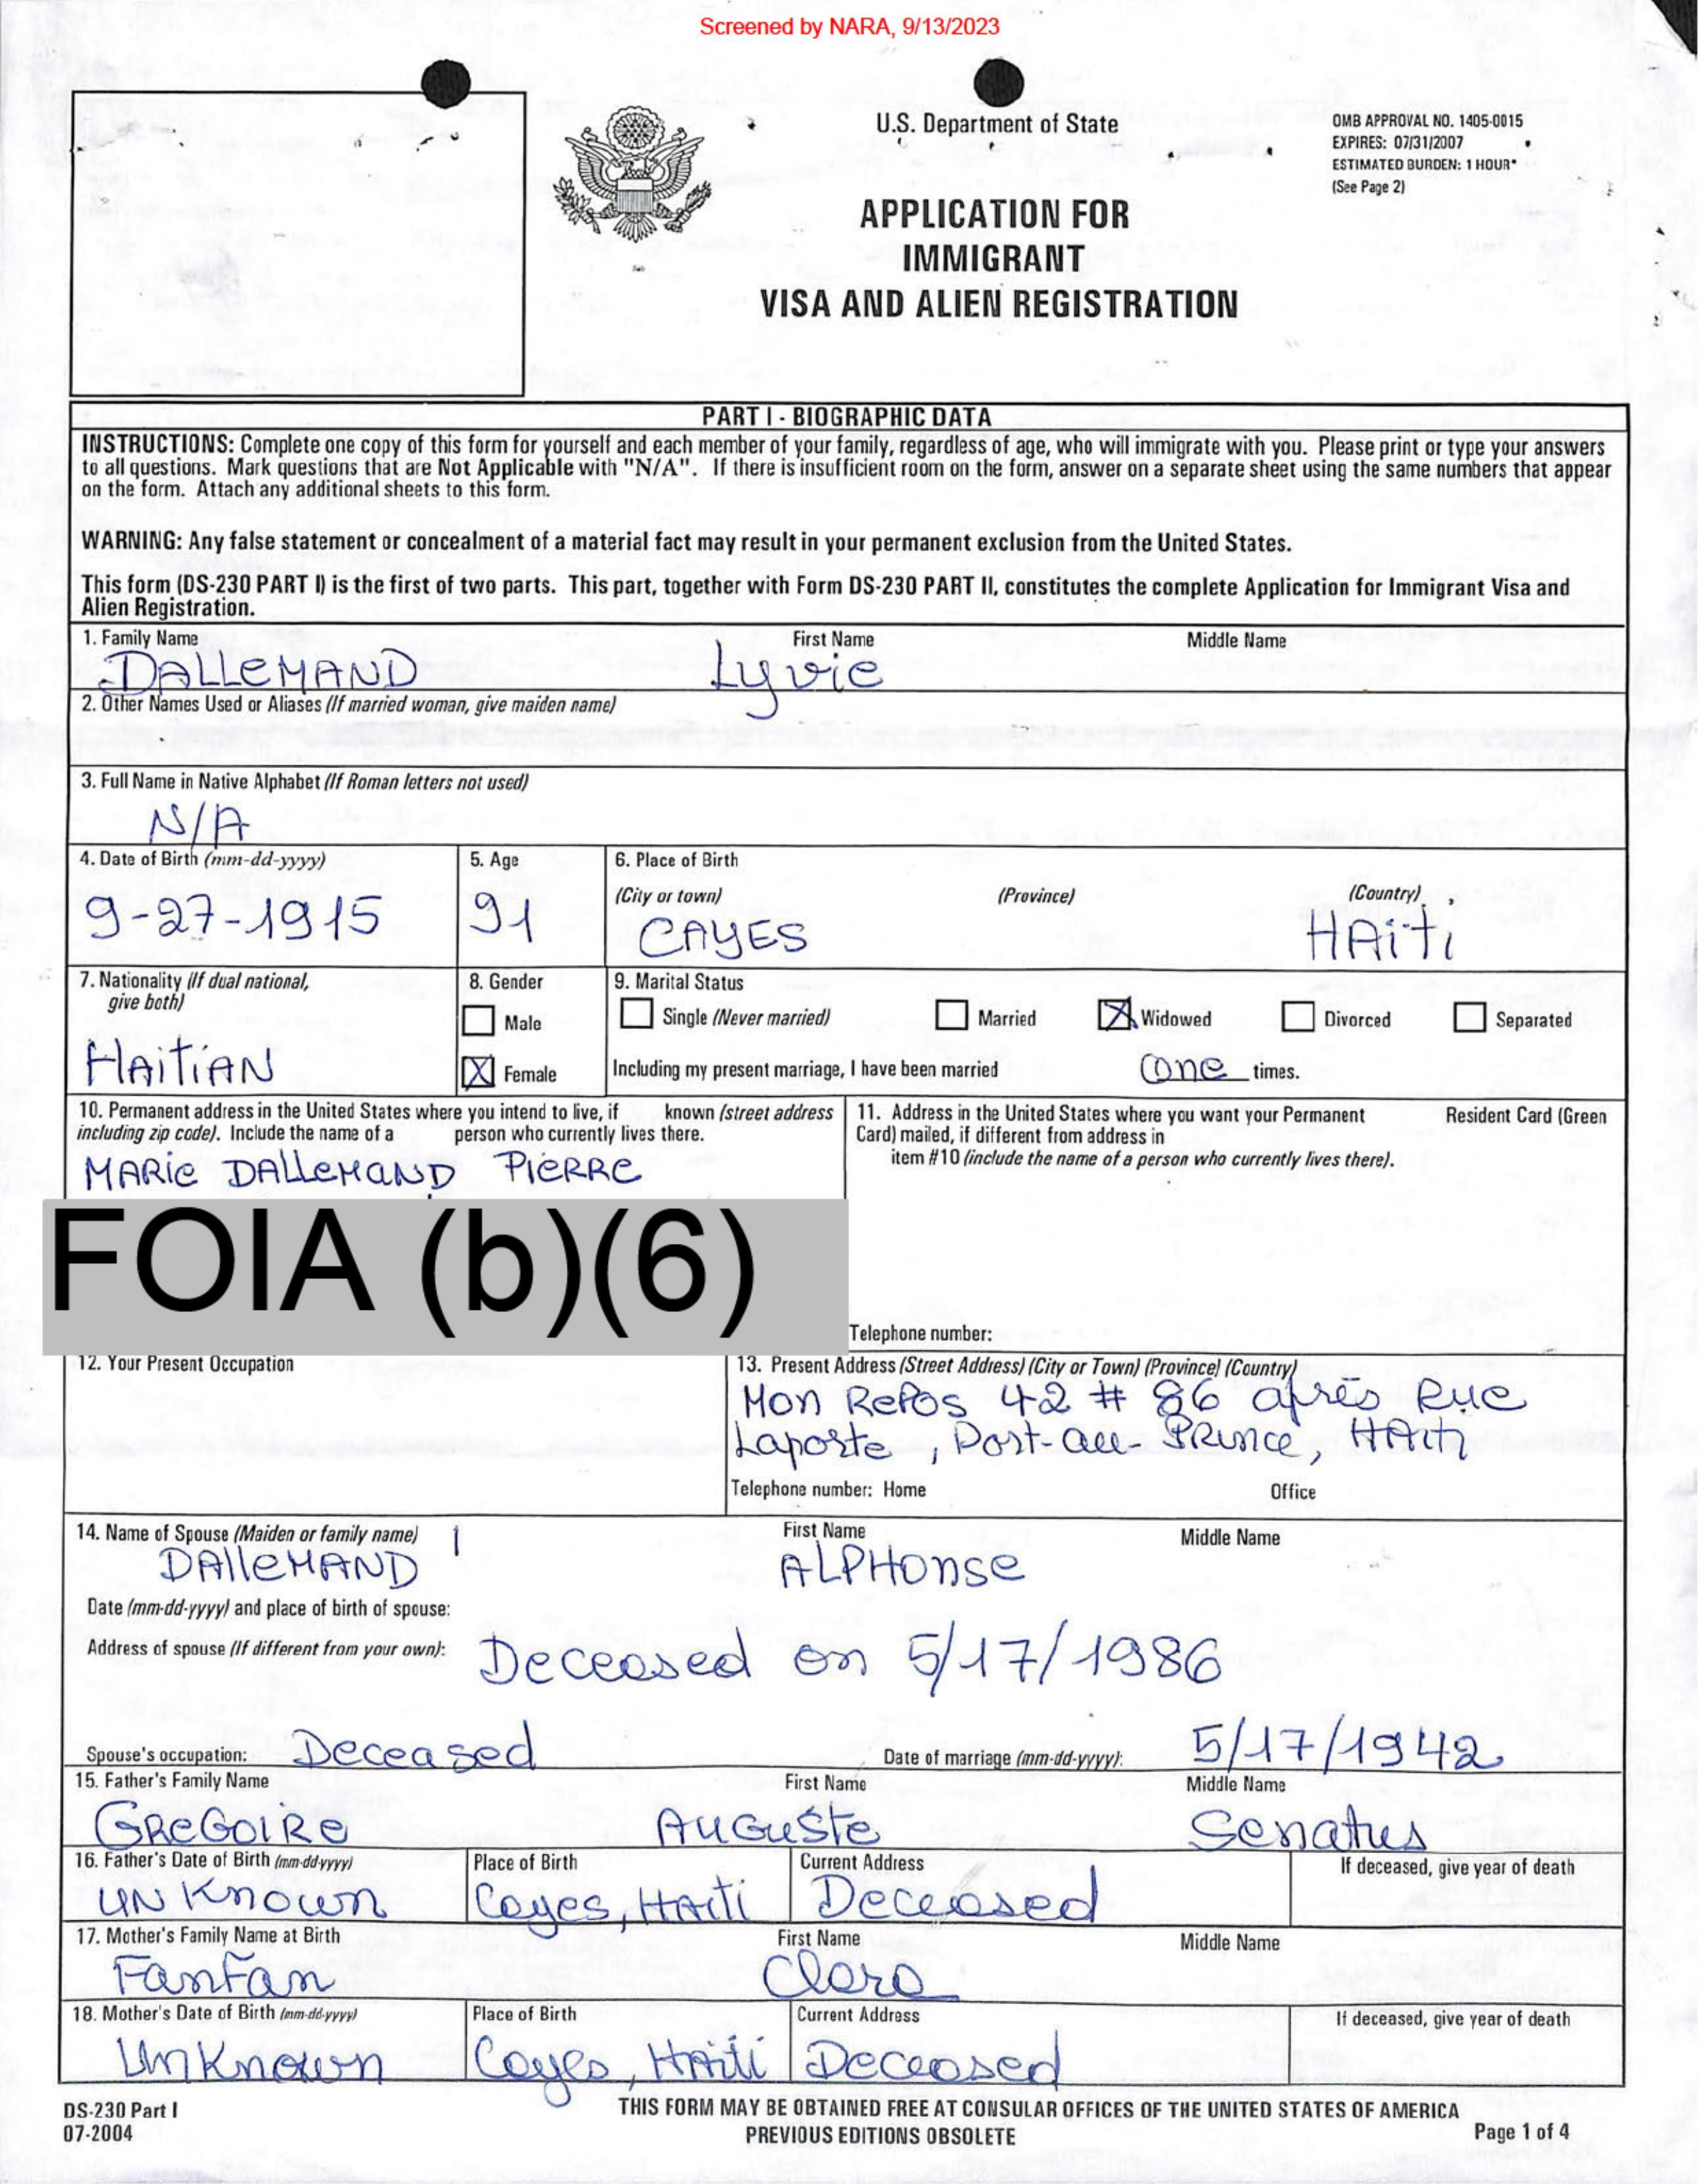 Screened by NARA, 9/13/2023
U.S. Department of State
OMB APPROVAL NO. 1405-0015
EXPIRES: 07/31/2007
ESTIMATED BURDEN: 1 HOUR*
(See Page 2)
APPLICATION FOR
IMMIGRANT
VISA AND ALIEN REGISTRATION
PART I - BIOGRAPHIC DATA
INSTRUCTIONS: Complete one copy of this form for yourself and each member of your family, regardless of age, who will immigrate with you. Please print or type your answers
to all questions. Mark questions that are Not Applicable with "N/A". If there is insufficient room on the form, answer on a separate sheet using the same numbers that appear
on the form. Attach any additional sheets to this form.
WARNING: Any false statement or concealment of a material fact may result in your permanent exclusion from the United States.
This form (DS-230 PART I) is the first of two parts. This part, together with Form DS-230 PART II, constitutes the complete Application for Immigrant Visa and
Alien Registration.
1. Family Name First Name Middle Name
DALLEMAND Lyvie
2. Other Names Used or Aliases (If married woman, give maiden name)
3. Full Name in Native Alphabet (If Roman letters not used)
N/A
4. Date of Birth (mm-dd-yyyy) 5. Age 6. Place of Birth
(City or town) (Province) (Country)
9-27-1915 91 CAYES HAITI
7. Nationality (If dual national, 8. Gender 9. Marital Status
give both)
Male Single (Never married) Married Widowed Divorced Separated
HAITIAN Female Including my present marriage, I have been married one times.
10. Permanent address in the United States where you intend to live, if known (street address 11. Address in the United States where you want your Permanent Resident Card (Green
including zip code). Include the name of a person who currently lives there. Card) mailed, if different from address in
item #10 (include the name of a person who currently lives there).
MARIE DALLEMAND PIERRE
FOIA (b)(6)
Telephone number:
12. Your Present Occupation 13. Present Address (Street Address) (City or Town) (Province) (Country)
Mon Repos 42 # 86 après Rue
Laporte, Port-au PRince, HAiti
Telephone number: Home Office
14. Name of Spouse (Maiden or family name) First Name Middle Name
DALLEMAND ALPHONSE
Date (mm-dd-yyyy) and place of birth of spouse:
Address of spouse (If different from your own): Deceased on 5/17/1986
Spouse's occupation: Deceased Date of marriage (mm-dd-yyyy): 5/17/1942
15. Father's Family Name First Name Middle Name
GREGOIRE AUGUSTE Senatus
16. Father's Date of Birth (mm-dd-yyyy) Place of Birth Current Address If deceased, give year of death
UNKnown Cayes, HAiti Deceased
17. Mother's Family Name at Birth First Name Middle Name
FanFan Clara
18. Mother's Date of Birth (mm-dd-yyyy) Place of Birth Current Address If deceased, give year of death
UnKnown Cayes, HAiti Deceased
DS-230 Part I THIS FORM MAY BE OBTAINED FREE AT CONSULAR OFFICES OF THE UNITED STATES OF AMERICA
07-2004 PREVIOUS EDITIONS OBSOLETE Page 1 of 4